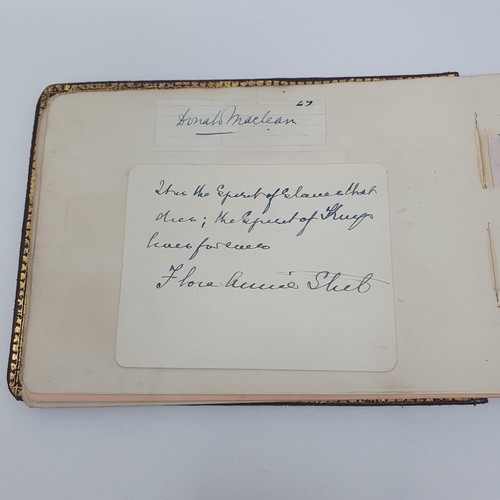 29
Donald Maclean
It is the Spirit of Slaves that
dies; the Spirit of Kings
lives for ever
Flora Annie Steel